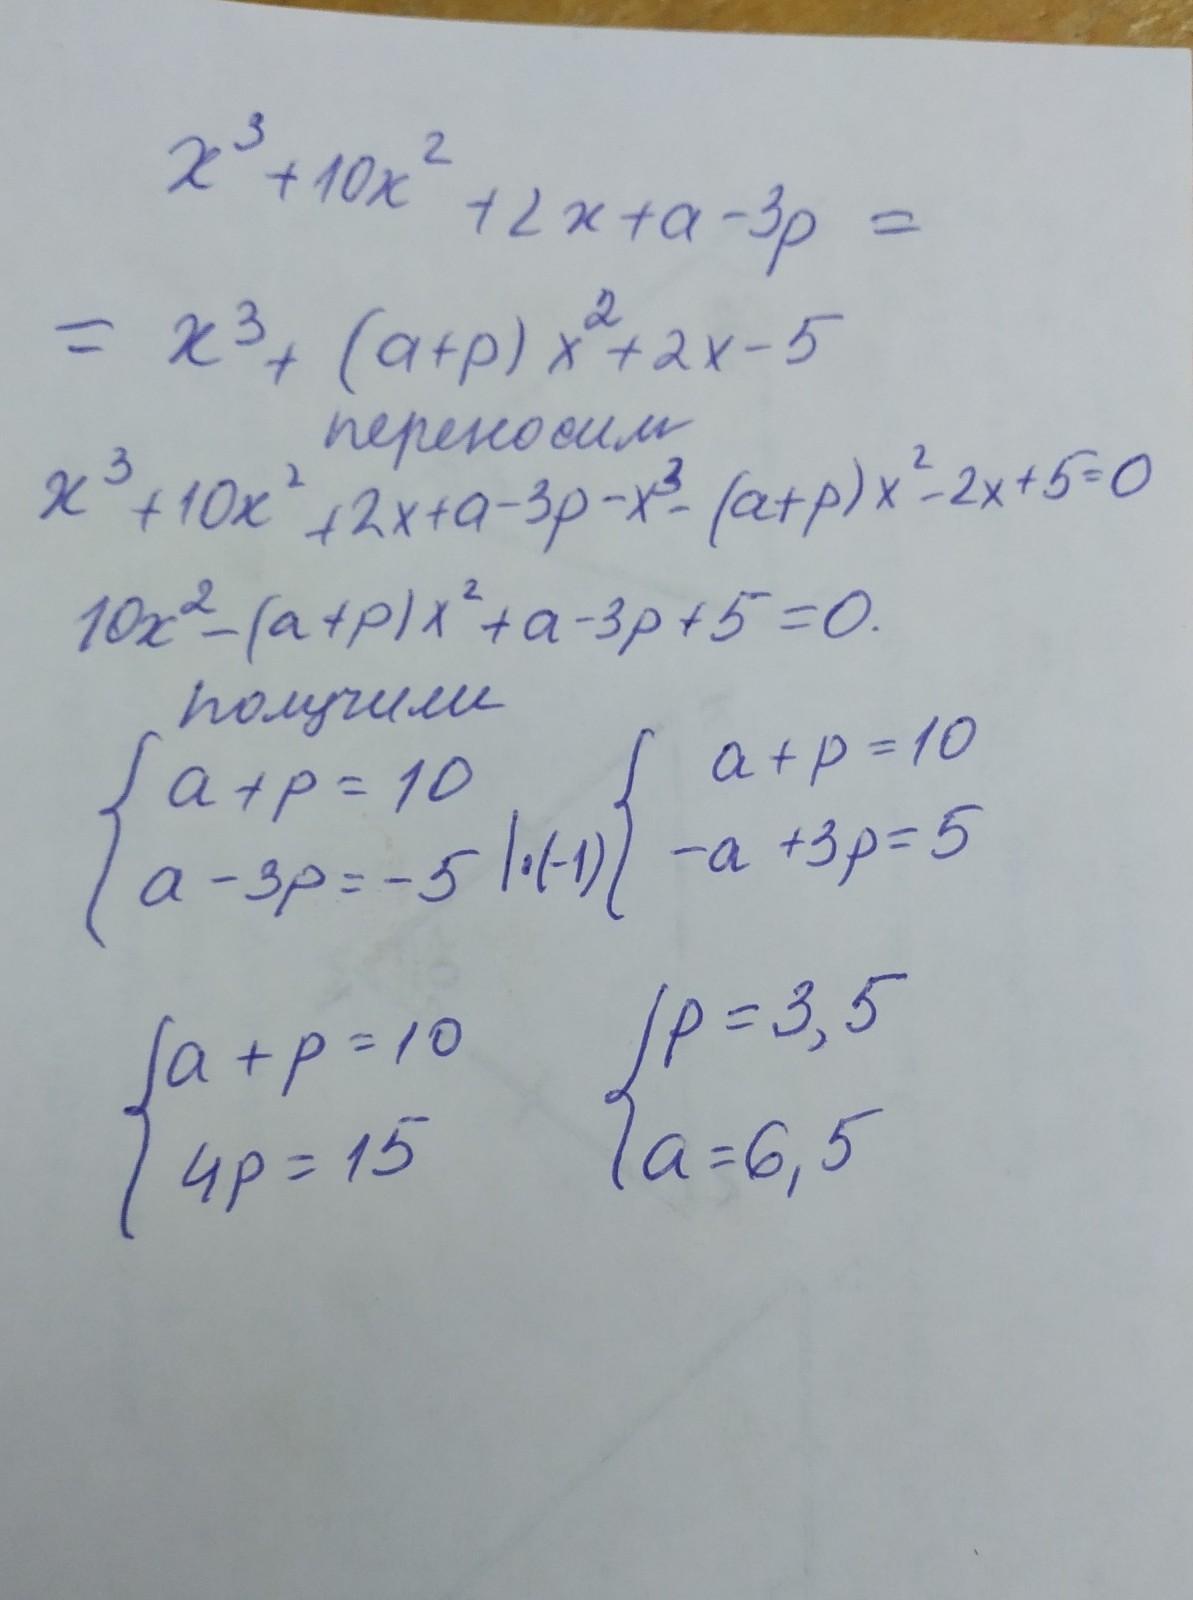 x³+10x²+2x+a-3p=
=x³+(a+p)x²+2x-5
переносим
x³+10x²+2x+a-3p-x³-(a+p)x²-2x+5=0
10x²-(a+p)x²+a-3p+5=0.
получили
{a+p=10 {a+p=10
a-3p=-5 |·(-1) -a+3p=5
{a+p=10 {p=3,5
4p=15 a=6,5